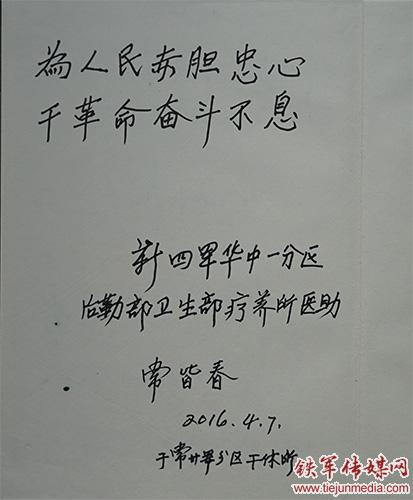 為人民赤胆忠心
干革命奋斗不息
新四军华中一分区
后勤部卫生部疗养所医助
常皆春
2016.4.7.
于常州军分区干休所
铁军传媒网
www.tiejunmedia.com